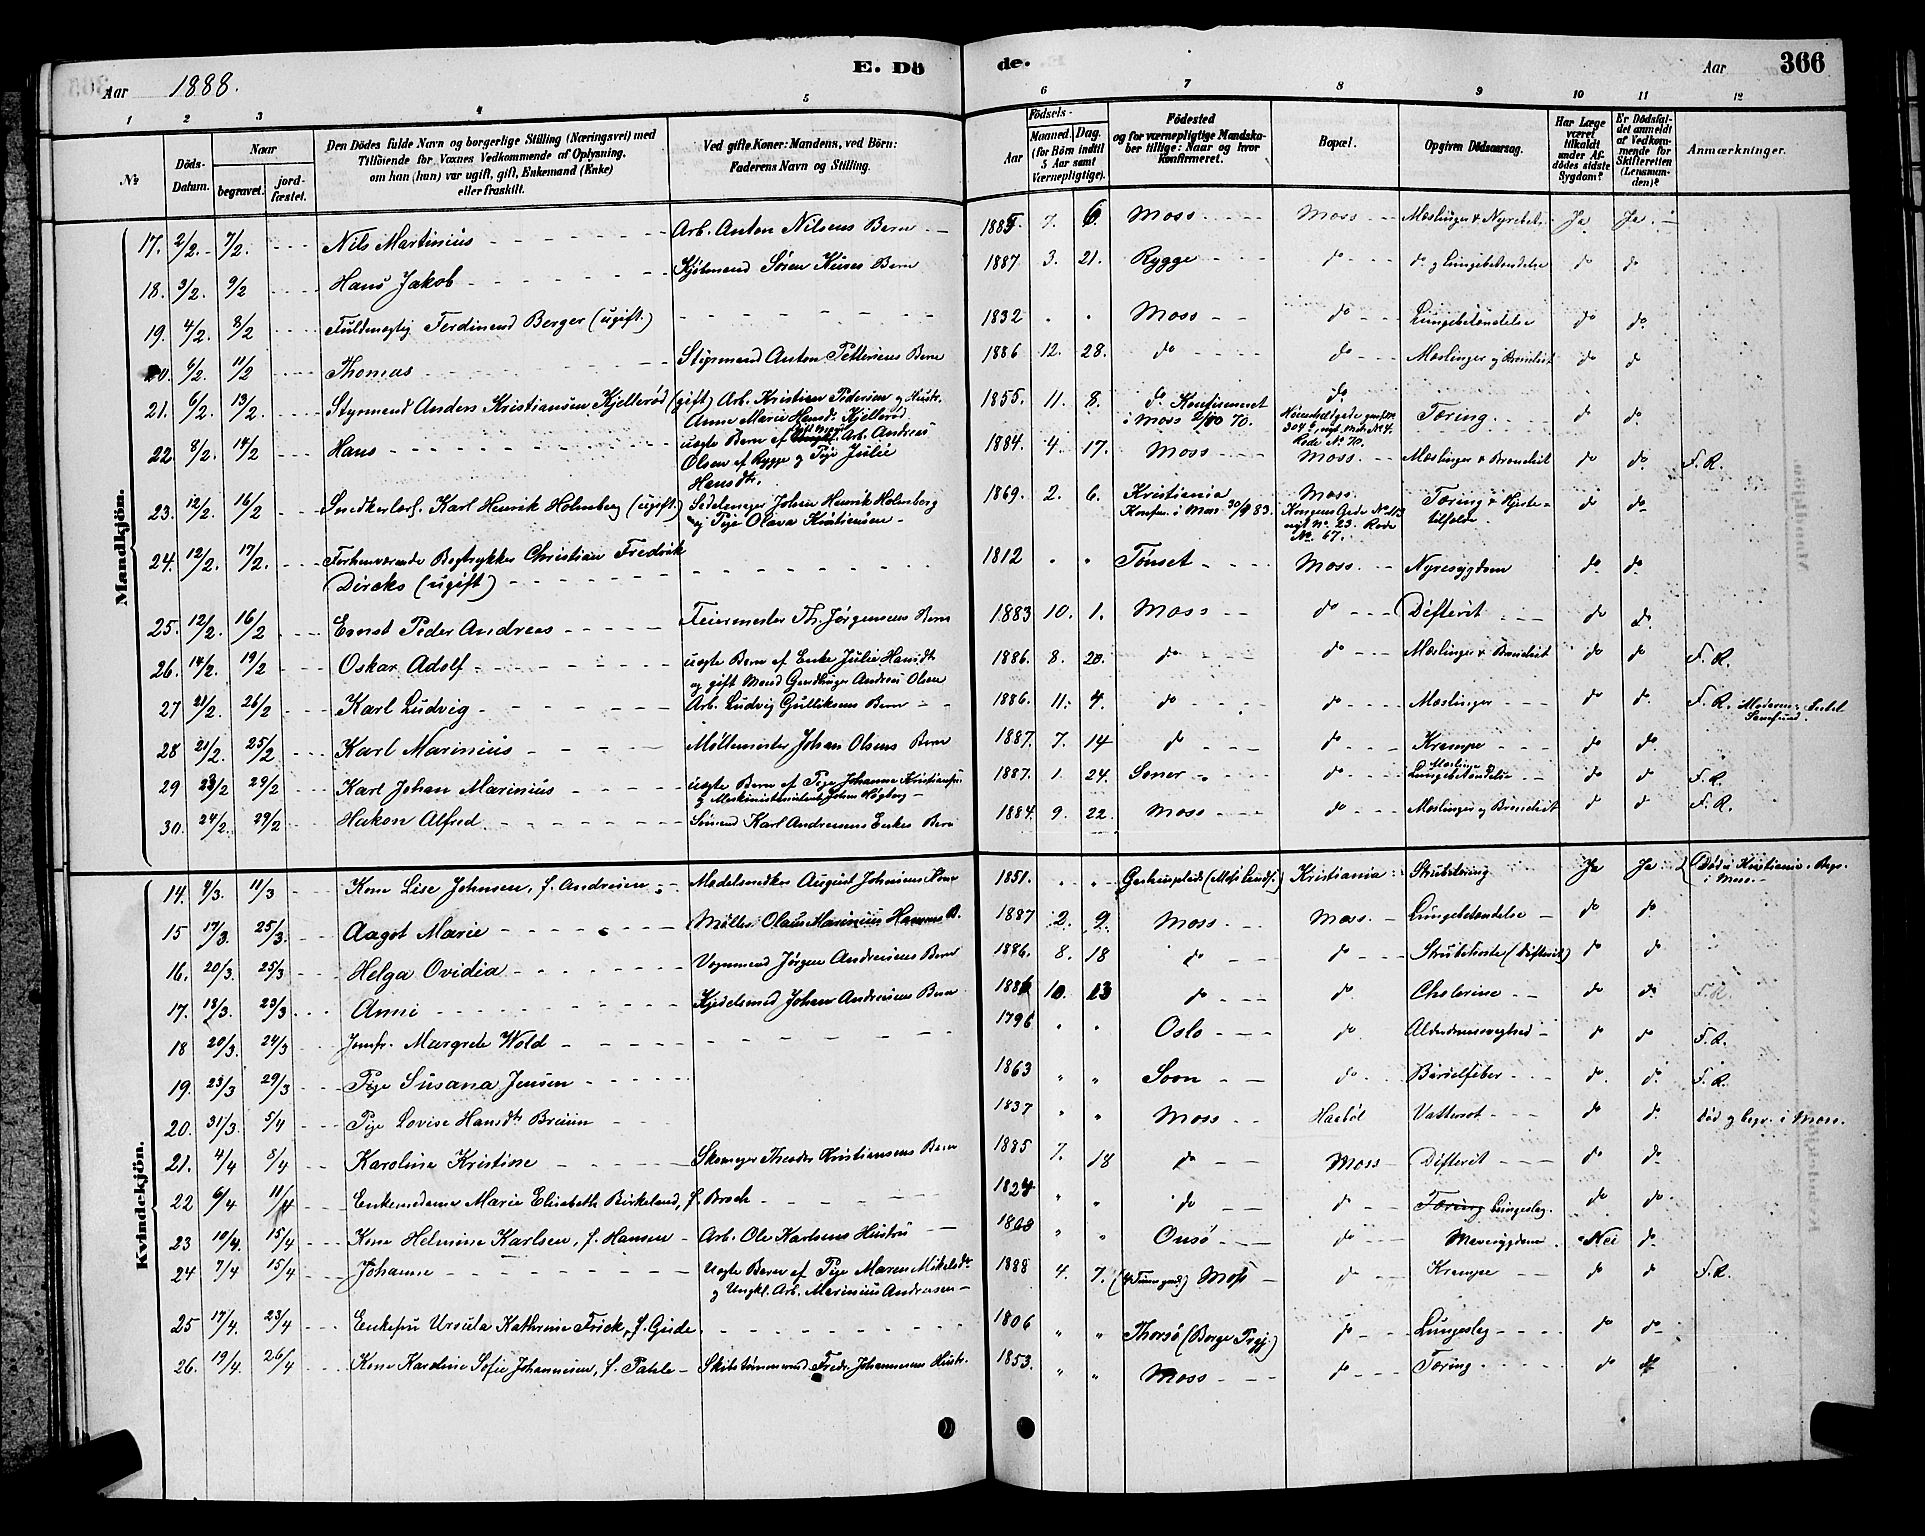 Aar 1888. E. Dö
de. Aar 366
1 2 3 4 5 6 7 8 9 10 11 12
№
Döds-
Datum.
Naar
begravet.
jord-
fæstet.
Den Dödes fulde Navn og borgerlige Stilling (Næringsvei) med
Tilföiende for Voxnes Vedkommende af Oplysning,
om han (hun) var ugift, gift, Enkemand (Enke)
eller fraskilt.
Ved gifte Koner: Mandens, ved Börn:
Faderens Navn og Stilling.
Födsels-
Aar
Maaned. Dag.
(for Börn indtil
5 Aar samt
Værnepligtige).
Födested
og for værnepligtige Mandska-
ber tillige: Naar og hvor
Konfirmeret.
Bopæl.
Opgiven Dödsaarsag.
Har Læge
været
tilkaldt
under Af-
dödes sidste
Sygdom?
Er Dödsfal-
det anmeldt
af Vedkom-
mende for
Skifteretten
(Lensman-
den)?
Anmærkninger.
Mandkjön.
17. 2/2. 7/2. Nils Martinius Arb. Anton Nilsens Barn 1885. 7. 6. Moss Moss Mæslinger & Ja Ja
18. 3/2. 9/2 Hans Jakob Kjöbmand Sören Barn 1887 3. 21. Rygge do do g Lungebetændelse do do
19. 4/2. 8/2 Fuldmægtig Ferdinand Berger (ugift.) 1832 " " Moss do Lungebetændelse do do
20. 6/2. 11/2 Thomas Styrmand Anton Pettersens Barn 1886 12. 28. do do Mæslinger g Bronchit do do
21. 6/2. 13/2. Styrmand Anders Kristiansen Kjellerød (gift) Arb. Kristian Pedersen g Hustr. 1855. 11. 8. do Konfirmeret do Tæring do do
Anne Marie Hansdr. Kjellerød i Moss 70.
22. 8/2. 14/2 Hans uægte Barn af Arb. Andreas 1884. 4. 17. Moss Moss. Mæslinger & Bronchit do do F. R.
Olsen af Rygge g Pige Julie
Hansdtr.
23. 12/2. 16/2 Snedkerlærl. Karl Henrik Holmberg (ugift.) Johan Henrik Holmberg 1869. 2. 6. Kristiania Moss. Tæring & Hjerte- do do
g Pige Olava Kristiansen Konfir. i Moss 30/9 83. Kongens Gade tilfælde.
nyt No. 23. Rode
No. 67.
24. 12/2. 17/2. Forhenværende Bogtrykker Christian Fredrik 1812 " " Tønset Moss. Nyresygdom do do
Dircks (ugift)
25. 12/2. 16/2 Ernst Peder Andreas Feiermester Th. Jørgensens Barn 1883 10. 1. Moss do Difterit do do
26. 14/2. 19/2 Oskar Adolf uægte Barn af Enke Julie Hansdtr 1886. 8. 20. do do Mæslinger & Bronchit do do F. R.
og gift Mand Andreas Olsen
27 21/2. 26/2 Karl Ludvig Arb. Ludvig Gulliksens Barn 1886. 11. 4. do do Mæslinger do do F. R.
28 21/2. 25/2 Karl Marinius Møllemester Johan Olsens Barn 1887. 7. 14 do do Krampe do do
29 23/2 29/2 Karl Johan Marinius uægte Barn af Pige Johanne Kristiansen 1887. 1. 24. Soner do Lungebetændelse do do F. R.
g Maskinistassistent Johan Högberg
30. 24/2. 29/2 Hakon Alfred Sömand Karl Andreasens Enkes Barn 1884. 9. 22. Moss do Mæslinger g Bronchit do do F. R.
Kvindekjön.
14. 4/3. 11/3 Kone Lise Johnsen, f. Andresen Modelsnedker August Johnsens Kone 1851. " " (Moss Lands.) Kristiania Strubetæring Ja Ja Død i Kristiania. Begr.
i Moss.
15 17/3. 25/3. Aagot Marie Möller Olaus Marinius Hansens B. 1887 2. 9. Moss Moss Lungebetændelse do do
16. 20/3. 25/3 Helga Ovidia Vognmand Jørgen Andreasens Barn 1886. 8. 18 do do Strubehoste (Difterit) do do
17. 18/3. 23/3. Anni Kjedelsmed Johan Andreasens Barn 1886 10. 13 do do Cholerine do do F. R.
18 20/3. 24/3 Jomfr. Margrete Wold 1796 " " Oslo do Alderdomssvaghed do do F. R.
19. 23/3 29/3 Pige Susana Jensen 1863 " " Soon do Barselfeber do do F. R.
20. 31/3. 5/4 Pige Lovise Hansdtr Bruun 1837 " " Moss Haabøl Vattersot do do Død g begr. i Moss.
21. 4/4 8/4 Karoline Kristine Skomager Theodor Kristiansens Barn 1885 7. 18 do Moss Difterit do do
22 6/4 11/4 Enkemadame Marie Elisabeth Birkeland, f. Brock 1824 " " do do Tæring Lungeslag. do do
23 10/4. 15/4 Kone Helmine Karlsen, f. Hansen Arb. Ole Karlsens Hustru 1868 " " Onsø do Mavesygdom Nei do
24 7/4 15/4 Johanne Uægte Barn af Pige Maren Mikelsdtr 1888 4. 7. Moss do Krampe do do F. R.
g Ungkl. Arb. Marinius Andersen
25 17/4. 23/4 Enkefru Ursula Kathrine Frick, f. Gude 1806 " " Thorsø (Borge Prgj.) do Lungeslag do do
26. 19/4. 26/4 Kone Karoline Sofie Johannesen, f. Pahle Skibstømmermd. Fredr. Johannesens Hustr. 1853. " " Moss do Tæring do do